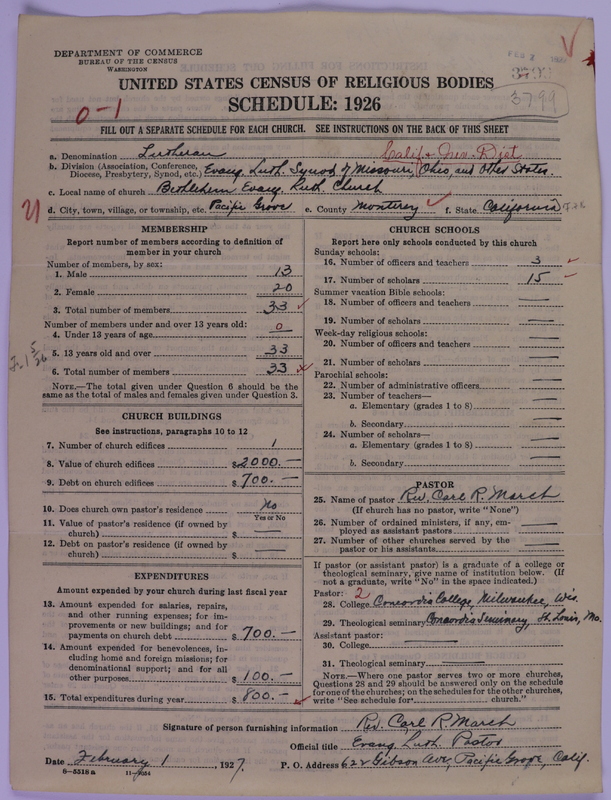 DEPARTMENT OF COMMERCE
BUREAU OF THE CENSUS
WASHINGTON
3799
UNITED STATES CENSUS OF RELIGIOUS BODIES
SCHEDULE: 1926
0-1
FILL OUT A SEPARATE SCHEDULE FOR EACH CHURCH. SEE INSTRUCTIONS ON THE BACK OF THIS SHEET
a. Denomination Lutheran Calif & Nev. Dist
b. Division (Association, Conference, Diocese, Presbytery, Synod, etc.) Evang. Luth. Synod of Missouri, Ohio, and Other States.
c. Local name of church Bethlehem Evang. Luth. Church
d. City, town, village, or township, etc. Pacific Grove e. County Monterey f. State California
MEMBERSHIP
Report number of members according to definition of
member in your church
Number of members, by sex:
1. Male 13
2. Female 20
3. Total number of members 33
Number of members under and over 13 years old:
4. Under 13 years of age 0
5. 13 years old and over 33
6. Total number of members 33
NOTE.—The total given under Question 6 should be the
same as the total of males and females given under Question 3.
CHURCH BUILDINGS
See instructions, paragraphs 10 to 12
7. Number of church edifices 1
8. Value of church edifices $2000.—
9. Debt on church edifices $700.—
10. Does church own pastor's residence No
Yes or No
11. Value of pastor's residence (if owned by
church) $ —
12. Debt on pastor's residence (if owned by
church) $ —
EXPENDITURES
Amount expended by your church during last fiscal year
13. Amount expended for salaries, repairs,
and other running expenses; for im-
provements or new buildings; and for
payments on church debt $700.—
14. Amount expended for benevolences, in-
cluding home and foreign missions; for
denominational support; and for all
other purposes $100.—
15. Total expenditures during year $800.—
CHURCH SCHOOLS
Report here only schools conducted by this church
Sunday schools:
16. Number of officers and teachers 3
17. Number of scholars 15
Summer vacation Bible schools:
18. Number of officers and teachers —
19. Number of scholars —
Week-day religious schools:
20. Number of officers and teachers —
21. Number of scholars —
Parochial schools:
22. Number of administrative officers —
23. Number of teachers—
a. Elementary (grades 1 to 8) —
b. Secondary —
24. Number of scholars—
a. Elementary (grades 1 to 8) —
b. Secondary —
PASTOR
25. Name of pastor Rev. Carl R. March
(If church has no pastor, write "None")
26. Number of ordained ministers, if any, em-
ployed as assistant pastors —
27. Number of other churches served by the
pastor or his assistants —
If pastor (or assistant pastor) is a graduate of a college or
theological seminary, give name of institution below. (If
not a graduate, write "No" in the space indicated.)
Pastor: 2
28. College Concordia College, Milwaukee, Wis.
29. Theological seminary Concordia Seminary, St. Louis, Mo.
Assistant pastor:
30. College —
31. Theological seminary —
NOTE.—Where one pastor serves two or more churches,
Questions 28 and 29 should be answered only on the schedule
for one of the churches; on the schedules for the other churches,
write "See schedule for church."
Signature of person furnishing information Rev. Carl R. March
Official title Evang. Luth. Pastor
Date February 1, 1927. P. O. Address 622 Gibson Ave., Pacific Grove, Calif.
8-5518a 11-9054